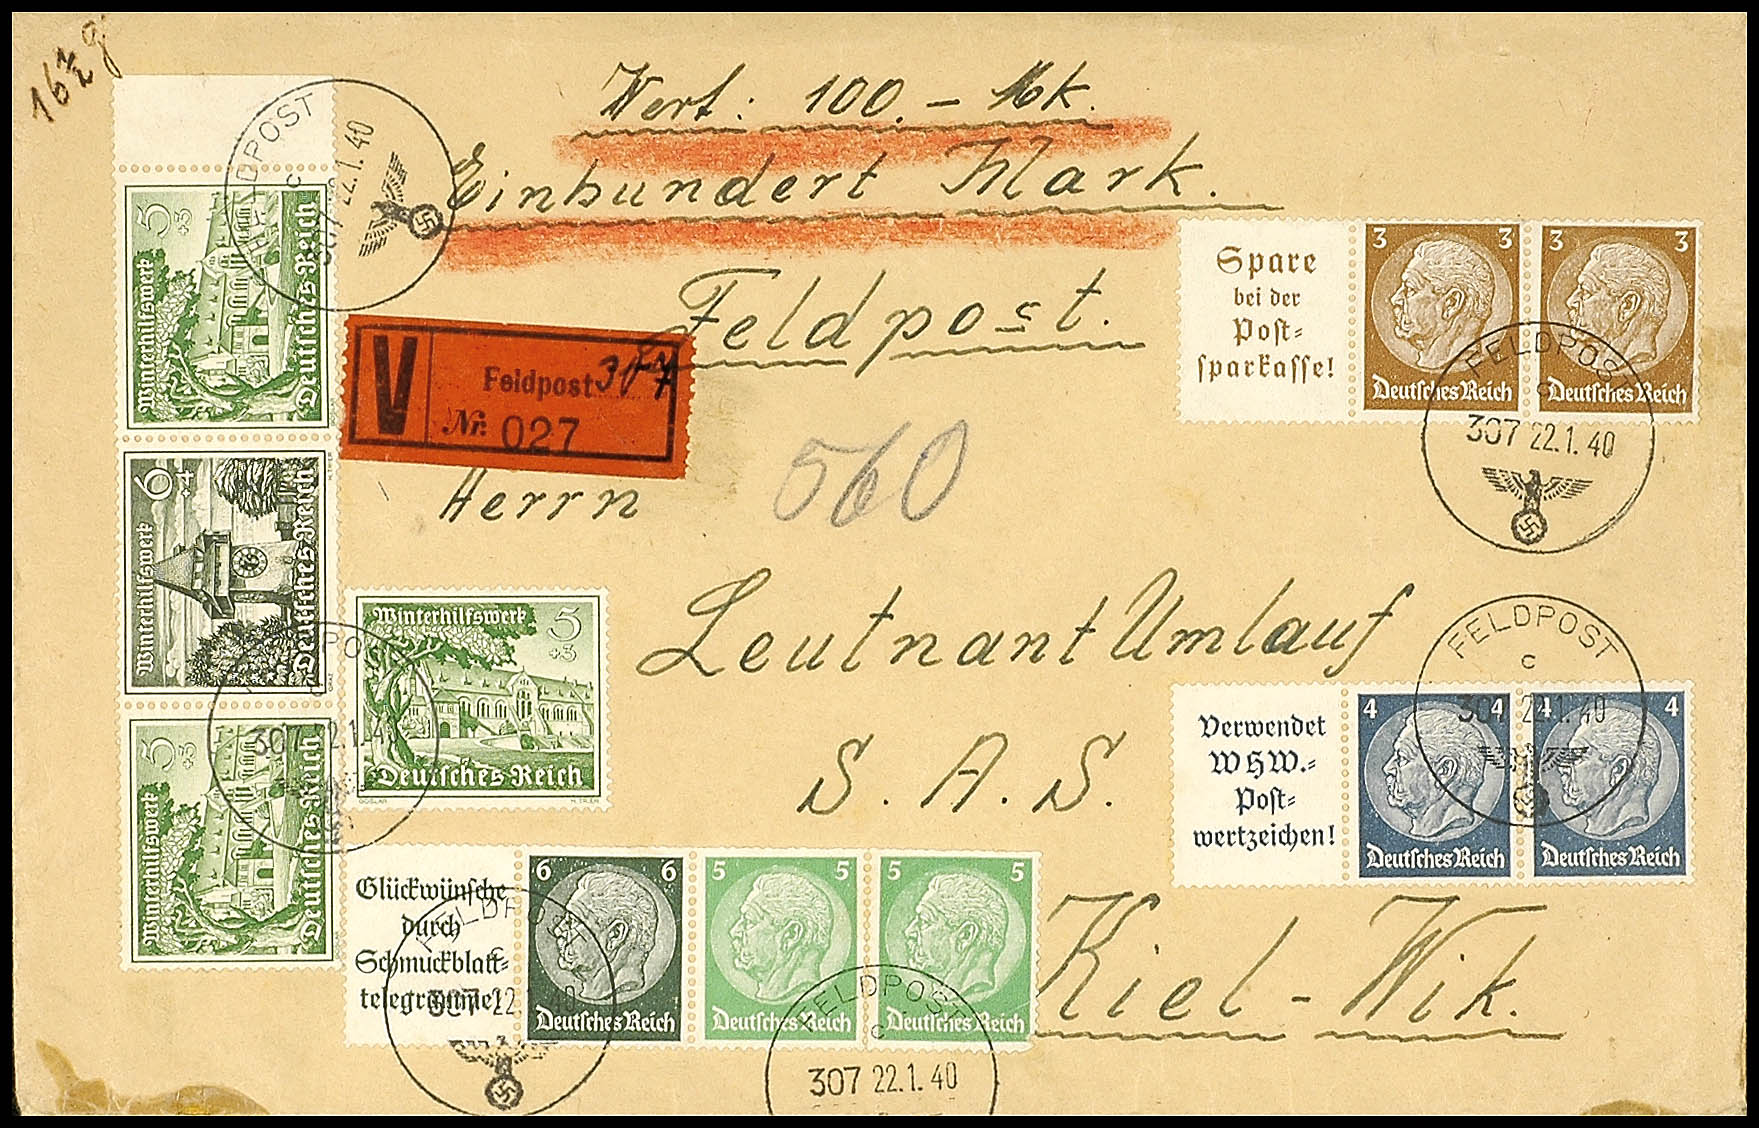 16½ g
Wert: 100.- Mk.
Einhundert Mark.
Feldpost.
V Feldpost 307
Nr. 027
560
Herrn
Leutnant Umlauf
S. A. S.
Kiel-Wik.
5
+3
Winterhilfswerk
Deutsches Reich
6
+4
Winterhilfswerk
Deutsches Reich
5
+3
Winterhilfswerk
Deutsches Reich
Winterhilfswerk 5
+3
Deutsches Reich
GOSLAR
Spare
bei der
Post=
sparkasse!
3 3
Deutsches Reich
3 3
Deutsches Reich
Verwendet
WHW.=
Post=
wertzeichen!
4 4
Deutsches Reich
4 4
Deutsches Reich
Glückwünsche
durch
Schmuckblatt=
telegramme!
6 6
Deutsches Reich
5 5
Deutsches Reich
5 5
Deutsches Reich
FELDPOST
c
307 22.1.40
FELDPOST
c
307 22.1.40
FELDPOST
c
307 22.1.40
FELDPOST
307 22.1.4
FELDPOST
c
307 22 40
FELDPOST
c
307 22.1.40